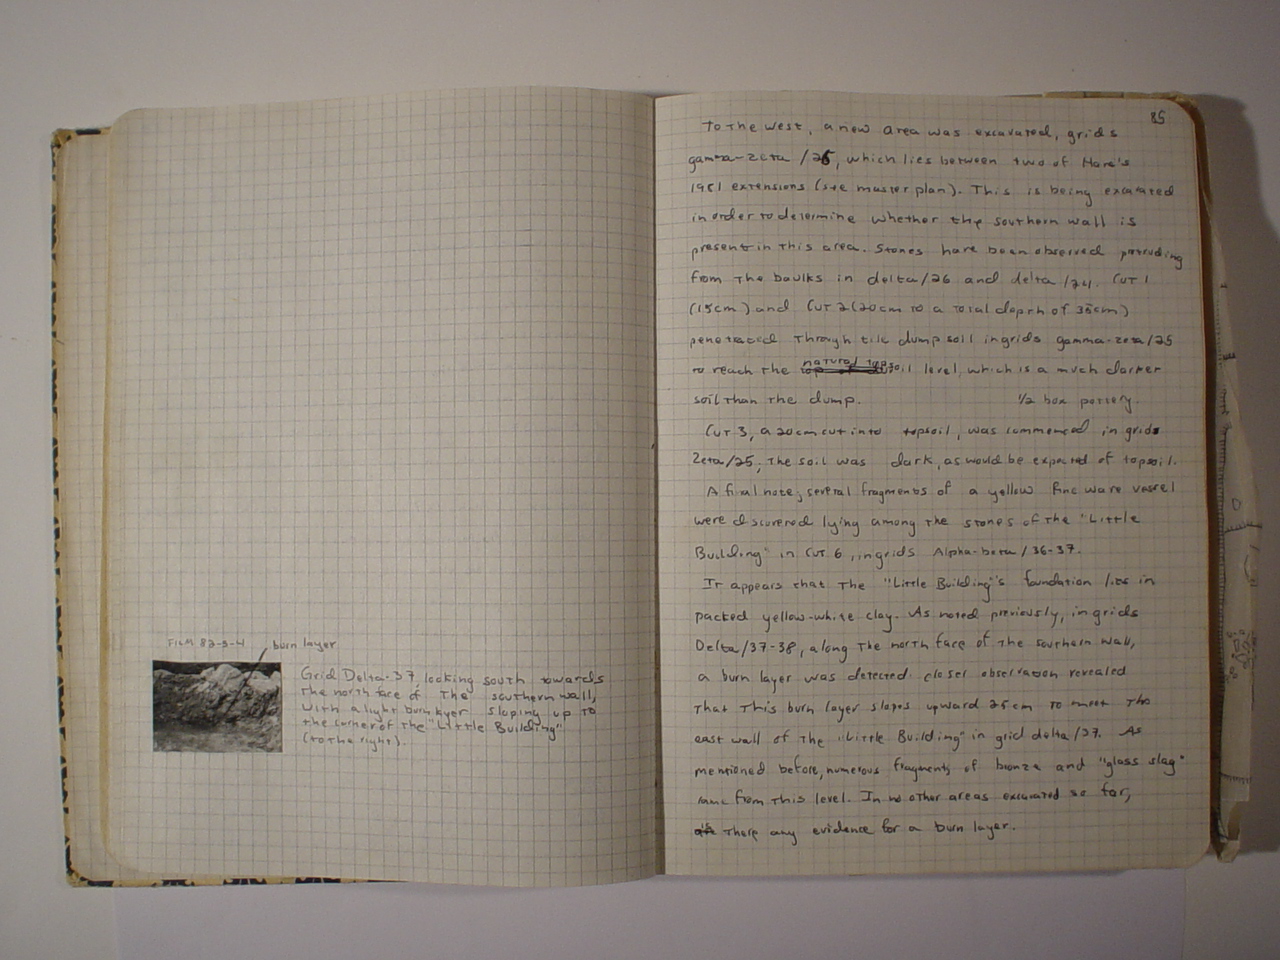 FILM 83-3-4
burn layer
Grid Delta-37, looking south towards
the north face of the southern wall,
with a light burn layer sloping up to
the corner of the "Little Building"
(to the right).
85
To the west, a new area was excavated, grids
gamma-zeta /25, which lies between two of Hare's
1961 extensions (see master plan). This is being excavated
in order to determine whether the southern wall is
present in this area. Stones have been observed protruding
from the baulks in delta/26 and delta/24. Cut 1
(15cm) and Cut 2 (20cm to a total depth of 35cm)
penetrated through the dump soil in grids gamma-zeta/25
to reach the natural topsoil level, which is a much darker
soil than the dump. 1/2 box pottery.
Cut 3, a 20cm cut into topsoil, was commenced in grids
Zeta/25; the soil was dark, as would be expected of topsoil.
A final note; several fragments of a yellow fine ware vessel
were discovered lying among the stones of the "Little
Building" in Cut 6, in grids Alpha-beta/36-37.
It appears that the "Little Building"'s foundation lies in
packed yellow-white clay. As noted previously, in grids
Delta/37-38, along the north face of the southern wall,
a burn layer was detected. closer observation revealed
that this burn layer slopes upward 25cm to meet the
east wall of the "Little Building" in grid delta/37. As
mentioned before, numerous fragments of bronze and "glass slag"
came from this level. In no other areas excavated so far,
is there any evidence for a burn layer.